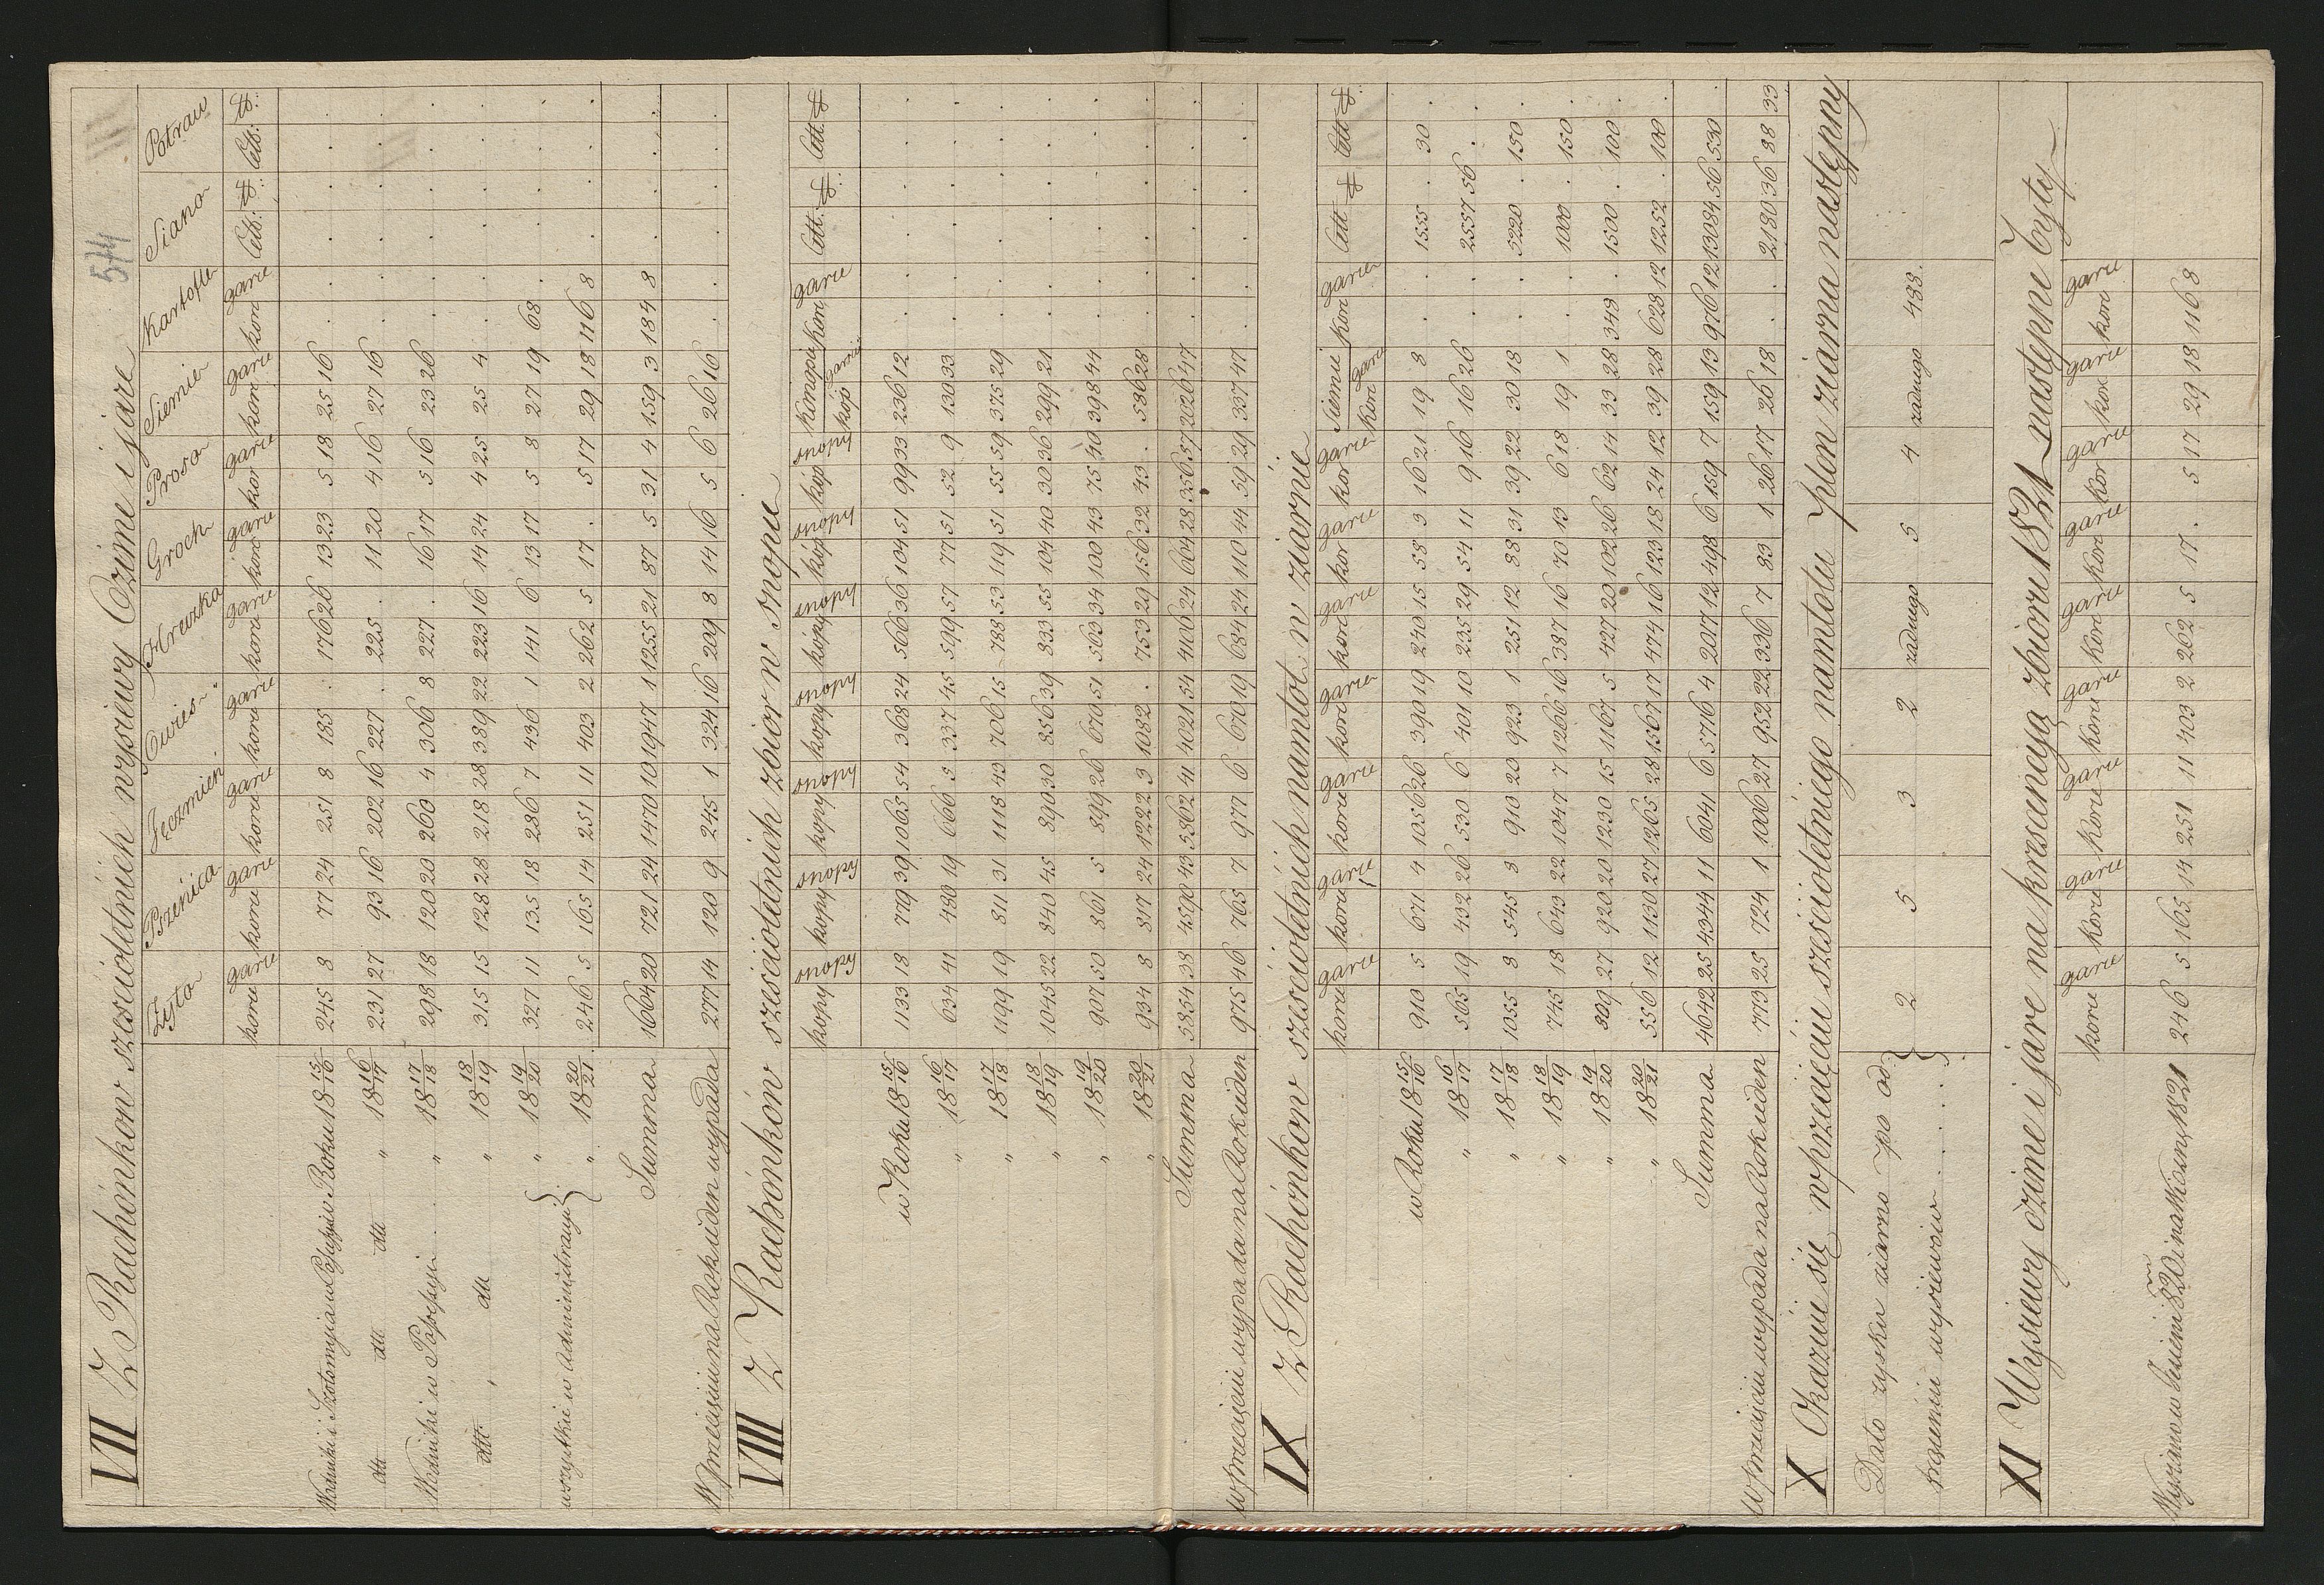 574
VII Z Rachónkow szescioletnich wysiewy Ozime i jare
Zyto Pszenica Jęczmien Owies Hreczka Groch Proso Siemie Kartofle Siano Potraw
korce garce korce garce korce garce korce garce korce garce korc garce kor garce korc garce korc garce Cetl: ℔: Cetl: ℔:
Roku 18 15/16 245 8 77 24 251 8 185 . 176 26 13 23 5 18 25 16 . . . . . .
dtt dtt dtt " 18 16/17 231 27 93 16 202 16 227 . 225 . 11 20 4 16 27 16 . . . . . .
w Possessyi " 18 17/18 298 18 120 20 260 4 306 8 227 . 16 17 5 16 23 26 . . . . . .
dtt " dtt " 18 18/19 315 15 128 28 218 28 389 22 223 16 14 24 4 25 25 4 . . . . . .
" 18 19/20 327 11 135 18 286 7 436 1 141 6 13 17 5 8 27 19 68 . . . . .
wszystkie w Administracyi " 18 20/21 246 5 165 14 251 11 403 2 262 5 17 . 5 17 29 18 116 8 . . . .
Summa 1664 20 721 24 1470 10 1947 1 1255 21 87 5 31 4 159 3 184 8 . . . .
W przecięciu na Rok ieden wypada 277 14 120 9 245 1 324 16 209 8 14 16 5 6 26 16 . . . . .
VIII Z Rachónków szescioletnich zbior w snopie
kopy snopy kopy snopy kopy snopy kopy snopy kopy snopy kop snopy kop snopy Konopie kop garcie korc garce Cett. ℔ Cett. ℔
w Roku 18 15/16 1133 18 779 39 1065 54 368 24 566 36 104 51 99 33 236 12 . . . . . .
" 18 16/17 634 41 480 19 666 5 337 45 599 57 77 51 52 9 130 33 . . . . . .
" 18 17/18 1199 19 811 31 1118 43 706 15 788 53 119 51 55 59 375 29 . . . . . .
" 18 18/19 1045 22 840 45 890 30 856 39 833 55 104 40 30 36 299 21 . . . . . .
" 18 19/20 907 50 861 5 899 26 670 51 563 34 100 43 75 40 398 44 . . . . . .
" 18 20/21 934 8 817 24 1222 3 1082 . 753 29 156 32 43 . 586 28 . . . . . .
Summa 5854 38 4590 43 5862 41 4021 54 4106 24 664 28 356 57 2026 47 . . . . . .
W przecięciu wypada na Rok ieden 975 46 765 7 977 6 670 19 684 24 110 44 59 29 337 47 . . . . . .
IX Z Rachónkow szescioletnich namłot w ziarnie
korce garce korce garce korce garce korce garce korc garce kor garce kor garce Siemie korc garc korc garce Cett ℔ Cett ℔
w Roku 18 15/16 910 5 671 4 1056 26 390 19 240 15 58 3 16 21 19 8 . . 1555 . 30 .
" 18 16/17 565 19 432 26 530 6 401 10 235 29 54 11 9 16 16 26 . . 2557 56 . .
" 18 17/18 1055 8 545 3 910 20 923 1 251 12 88 31 39 22 30 18 . . 5220 . 150 .
" 18 18/19 745 18 643 22 1047 7 1266 16 387 16 70 13 6 18 19 1 . . 1000 . 150 .
" 18 19/20 809 27 920 20 1230 15 1167 5 427 20 102 26 62 14 33 28 348 . 1500 . 100 .
" 18 20/21 556 12 1130 27 1265 28 1567 17 474 16 123 18 24 12 39 28 628 12 1252 . 100 .
Summa 4642 25 4344 11 6041 6 5716 4 2017 12 498 6 159 7 159 13 976 12 13084 56 530 .
W przecięciu wypada na Rok ieden 773 25 724 1 1006 27 952 22 336 7 83 1 26 17 26 18 . . 2180 36 88 33
X Okazuie się w przecięciu szescioletniego namłotu plon ziarna następny
Dało zysku ziarno po od-
trąceniu wysiewow . . . . 2 5 3 2 zadnego 5 4 zadnego 433.
XI Wysiewy ozime i jare na kresencją zbioru 1821 następne były
korce garce korce garce korce garce korce garce korce garce korc garce kor garce korc garce korc garce
Wysiano w Jesieni 820 i na Wiosnę 1821 246 5 165 14 251 11 403 2 262 5 17 . 5 17 29 18 116 8